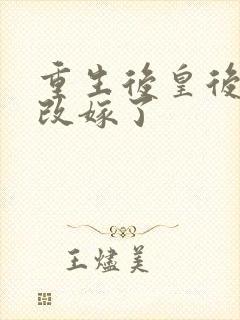 重生後皇後
改嫁了
王燼美